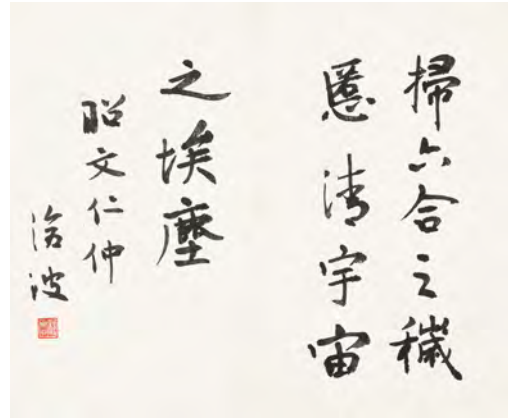 掃六合之穢
慝清宇宙
之埃塵
昭文仁仲
滄波